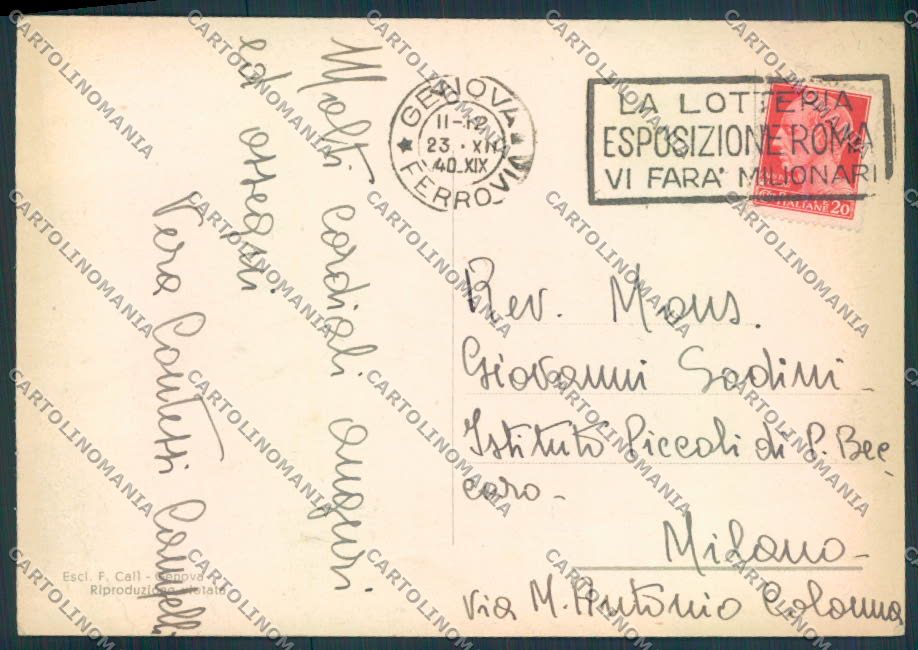 Molti cordiali auguri
ed ossequi
Vera Contetti
GENOVA
11-12
23 · XII
40 XIX
FERROVIA
LA LOTTERIA
ESPOSIZIONE ROMA
VI FARA' MILIONARI
ITALIANE 20
Rev. Mons.
Giovanni
Istituto Piccoli di P. Bec
caro -
Milano -
Via M. Antonio Colonna
Escl. F. Calì - Genova -
Riproduzione vietata
CARTOLINOMANIA